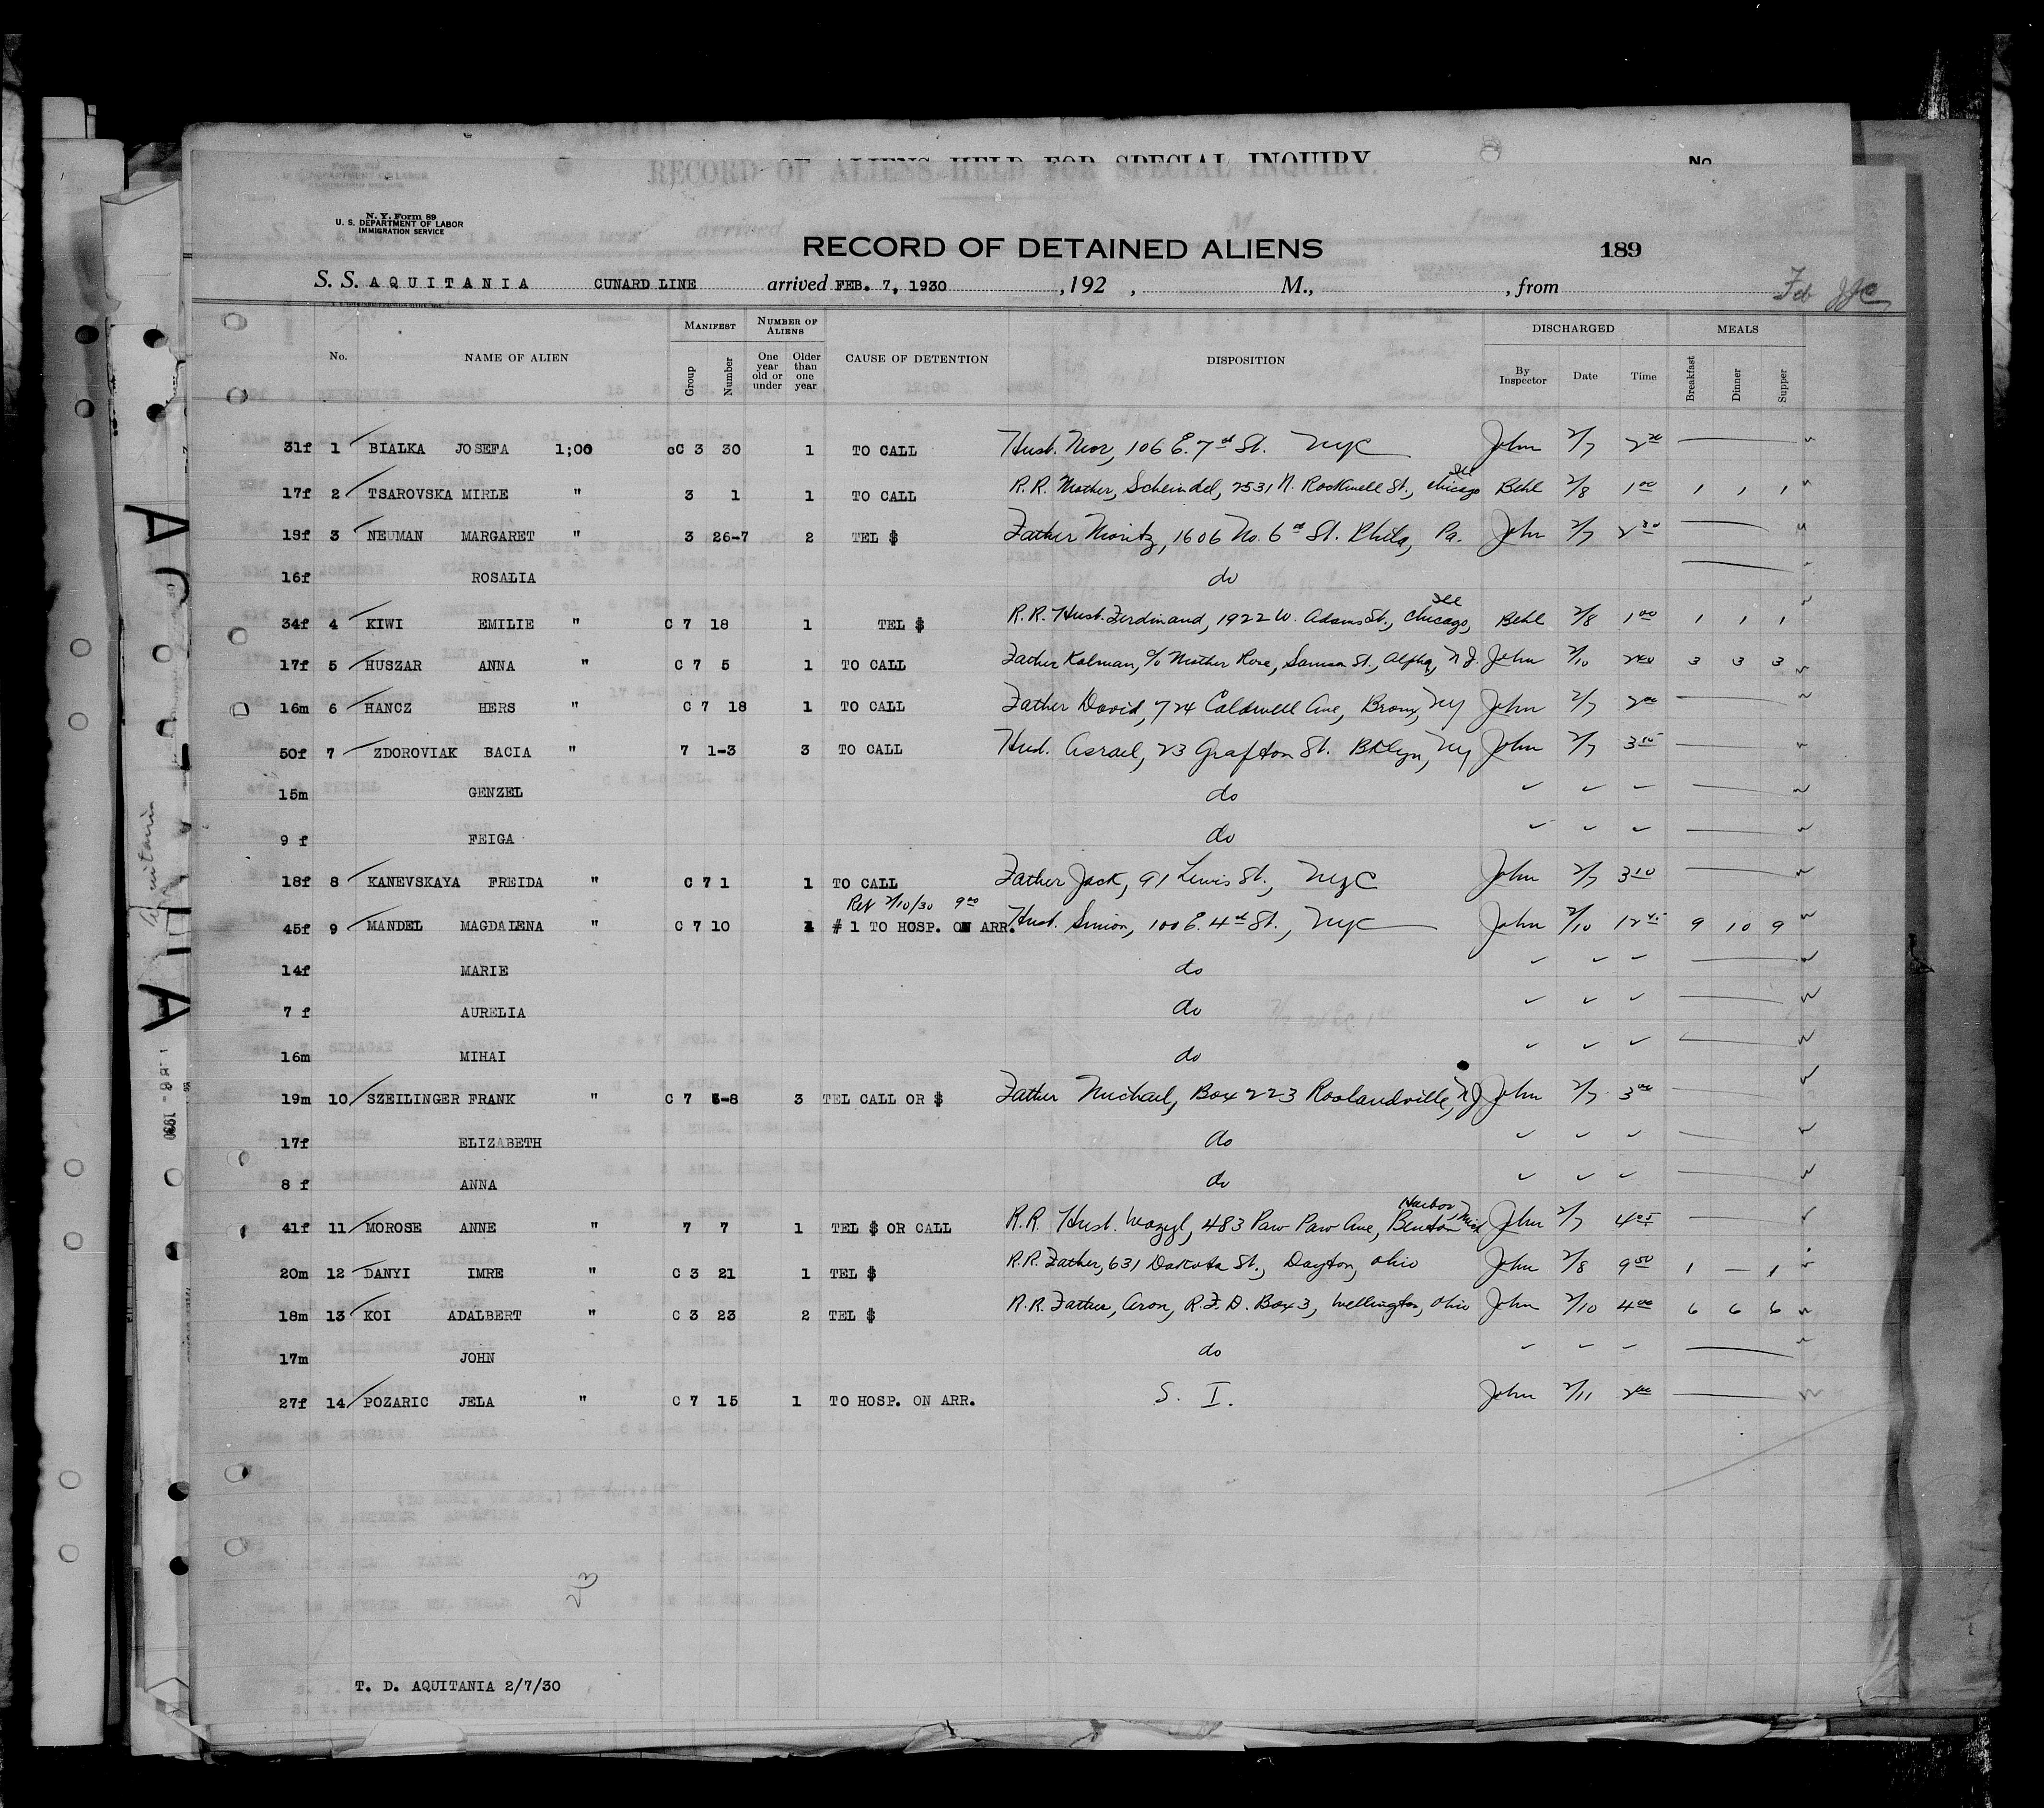 RECORD OF ALIENS HELD FOR SPECIAL INQUIRY. No.
N. Y. Form 89
U. S. DEPARTMENT OF LABOR
IMMIGRATION SERVICE
RECORD OF DETAINED ALIENS 189
S. S. AQUITANIA CUNARD LINE arrived FEB. 7, 1930 , 192 , M., , from Feb
MANIFEST NUMBER OF ALIENS DISCHARGED MEALS
No. NAME OF ALIEN Group Number One year old or under Older than one year CAUSE OF DETENTION DISPOSITION By Inspector Date Time Breakfast Dinner Supper
31f 1 BIALKA JOSEFA 1;00 cC 3 30 1 TO CALL Husb. Mor, 106 E. 7th St. NYC John 2/7 2
17f 2 TSAROVSKA MIRLE " 3 1 1 TO CALL R.R. Mother, Scheindel, 2531 N. Rockwell St., Chicago Ill Behl 2/8 1 00 1 1 1
19f 3 NEUMAN MARGARET " 3 26-7 2 TEL $ Father Moritz, 1606 No. 6th St. Phila, Pa. John 2/7 2 30
16f ROSALIA do
34f 4 KIWI EMILIE " C 7 18 1 TEL $ R.R. Husb. Ferdinand, 1922 W. Adams St., Chicago, Ill Behl 2/8 1 00 1 1 1
17f 5 HUSZAR ANNA " C 7 5 1 TO CALL Father Kalman, c/o Mother Rose, Samson St, Alpha, N.J. John 2/10 2 40 3 3 3
16m 6 HANCZ HERS " C 7 18 1 TO CALL Father David, 724 Caldwell Ave, Bronx, NY John 2/7 2 00
50f 7 ZDOROVIAK BACIA " 7 1-3 3 TO CALL Husb. Asrael, 23 Grafton St. Bklyn, NY John 2/7 3 15
15m GENZEL do
9 f FEIGA do
18f 8 KANEVSKAYA FREIDA " C 7 1 1 TO CALL Father Jack, 91 Lewis St., NYC John 2/7 3 10
Ret 2/10/30 9 00
45f 9 MANDEL MAGDALENA " C 7 10 4 # 1 TO HOSP. ON ARR. Husb. Simion, 100 E. 4th St., NYC John 2/10 12 45 9 10 9
14f MARIE do
7 f AURELIA do
16m MIHAI do
19m 10 SZEILINGER FRANK " C 7 6-8 3 TEL CALL OR $ Father Michael, Box 223 Roslandville, NJ John 2/7 3 00
17f ELIZABETH do
8 f ANNA do
41f 11 MOROSE ANNE " 7 7 1 TEL $ OR CALL R.R. Husb. Wazyl, 483 Paw Paw Ave, Benton Harbor, Mich John 2/7 4 05
20m 12 DANYI IMRE " C 3 21 1 TEL $ R.R. Father, 631 Dakota St., Dayton, Ohio John 2/8 9 50 1 — 1
18m 13 KOI ADALBERT " C 3 23 2 TEL $ R.R. Father, Aron, R.F.D. Box 3, Wellington, Ohio John 2/10 4 00 6 6 6
17m JOHN do
27f 14 POZARIC JELA " C 7 15 1 TO HOSP. ON ARR. S. I. John 2/11 2 00
2/3
T. D. AQUITANIA 2/7/30
Aquitania
1930